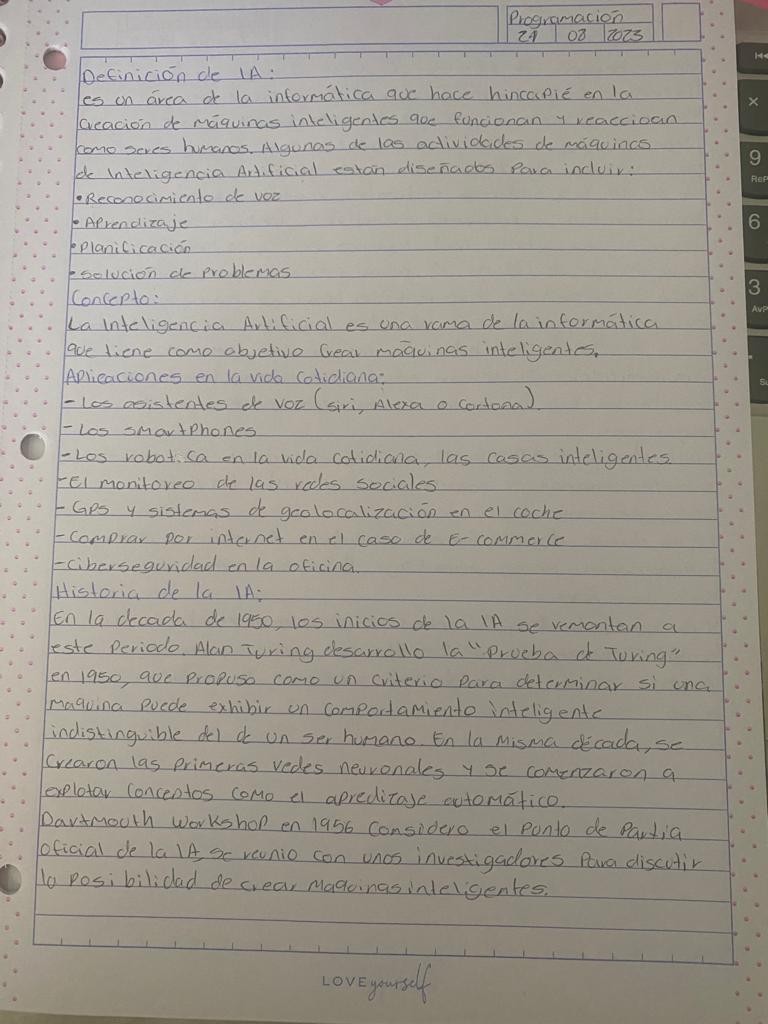 Programación
21 08 2023
Definición de IA:
es un área de la informática que hace hincapié en la
Creación de máquinas inteligentes que funcionan y reaccioan
como seres humanos. Algunas de las actividades de máquinas
de Inteligencia Artificial están diseñados para incluir:
• Reconocimiento de voz
• Aprendizaje
• Planificación
• Solución de problemas
Concepto:
La Inteligencia Artificial es una rama de la informática
que tiene como objetivo Crear máquinas inteligentes.
Aplicaciones en la vida cotidiana:
- Los asistentes de voz (siri, Alexa o Cortana).
- Los smartphones
- Los robotica en la vida cotidiana, las casas inteligentes
- El monitoreo de las redes sociales
- GPS y sistemas de geolocalización en el coche
- Comprar por internet en el caso de E-commerce
- ciberseguridad en la oficina.
Historia de la IA:
En la decada de 1950, los inicios de la IA se remontan a
este periodo. Alan Turing desarrollo la "prueba de Turing"
en 1950, que propuso como un criterio para determinar si una
maquina puede exhibir un comportamiento inteligente
indistinguible del de un ser humano. En la misma década, se
Crearon las primeras redes neuronales y se comenzaron a
explotar conceptos como el apreditaje automático.
Dartmouth Workshop en 1956 considero el punto de Partia
oficial de la IA, se reunio con unos investigadores para discutir
la posibilidad de crear maquinas inteligentes.
LOVE yourself
9
6
3